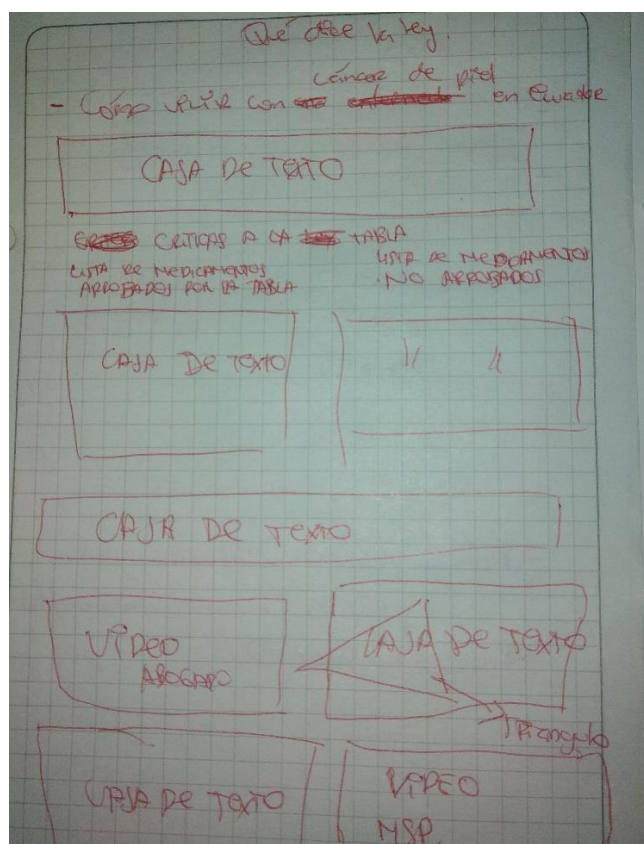 Qué dice la ley.
- Cómo vivir con cáncer de piel en Ecuador
CAJA DE TEXTO
CRITICAS A LA TABLA
LISTA DE MEDICAMENTOS
APROBADOS POR LA TABLA
LISTA DE MEDICAMENTOS
NO APROBADOS
CAJA DE TEXTO
" "
CAJA DE TEXTO
VIDEO
ABOGADO
CAJA DE TEXTO
Triangulo
CAJA DE TEXTO
VIDEO
MSP